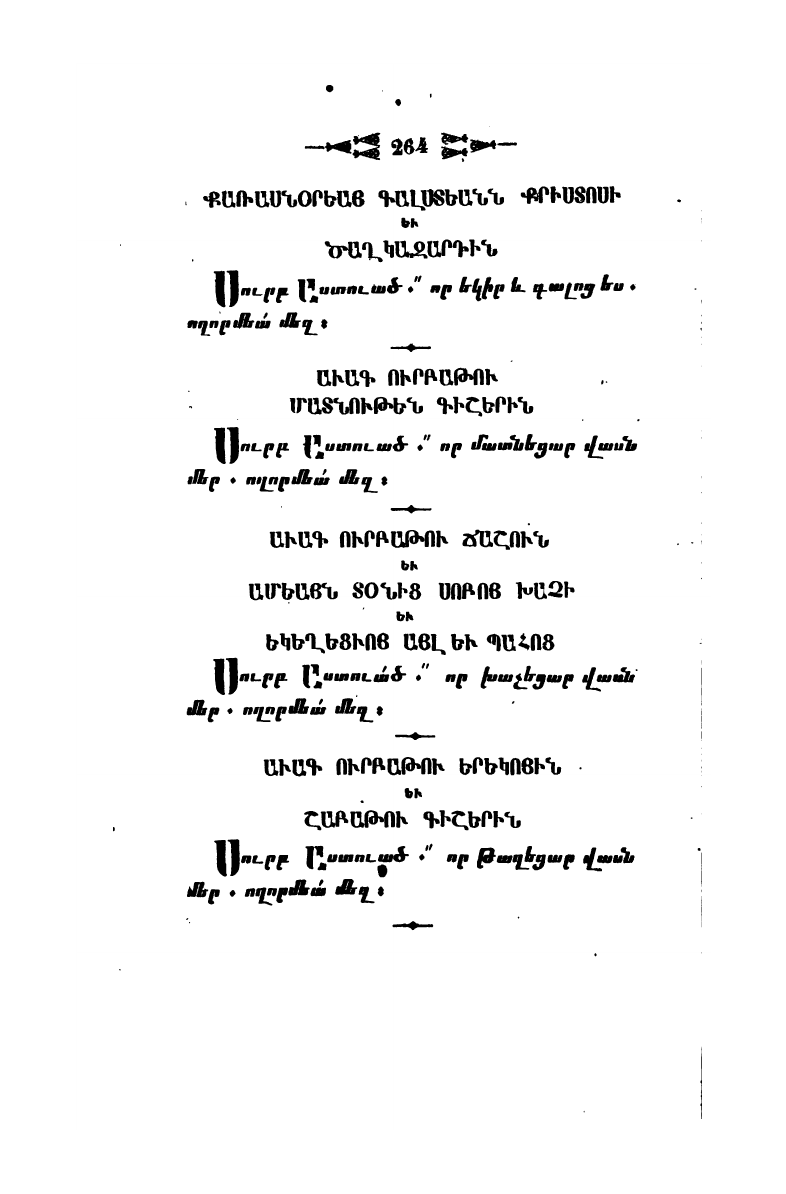 264
ՔԱՌԱՍՆՕՐԵԱՑ ԳԱԼՍՏԵԱՆՆ ՔՐԻՍՏՈՍԻ
ԵՒ
ԾԱՂԿԱԶԱՐԴԻՆ
Սուրբ Աստուած .՞ որ եկիր և գալոց ես .
ողորմեա՛ մեզ ։
ԱՒԱԳ ՈՒՐԲԱԹՈՒ
ՄԱՏՆՈՒԹԵՆ ԳԻՇԵՐԻՆ
Սուրբ Աստուած .՞ որ մատնեցար վասն
մեր . ողորմեա՛ մեզ ։
ԱՒԱԳ ՈՒՐԲԱԹՈՒ ՃԱՇՈՒՆ
ԵՒ
ԱՄԵԱՅՆ ՏՕՆԻՑ ՍՈԲՈՑ ԽԱՉԻ
ԵՒ
ԵԿԵՂԵՑՒՈՑ ԱՅԼ ԵՒ ՊԱՀՈՑ
Սուրբ Աստուած .՞ որ խաչեցար վասն
մեր . ողորմեա՛ մեզ ։
ԱՒԱԳ ՈՒՐԲԱԹՈՒ ԵՐԵԿՈՅԻՆ
ԵՒ
ՇԱԲԱԹՈՒ ԳԻՇԵՐԻՆ
Սուրբ Աստուած .՞ որ թաղեցար վասն
մեր . ողորմեա՛ մեզ ։